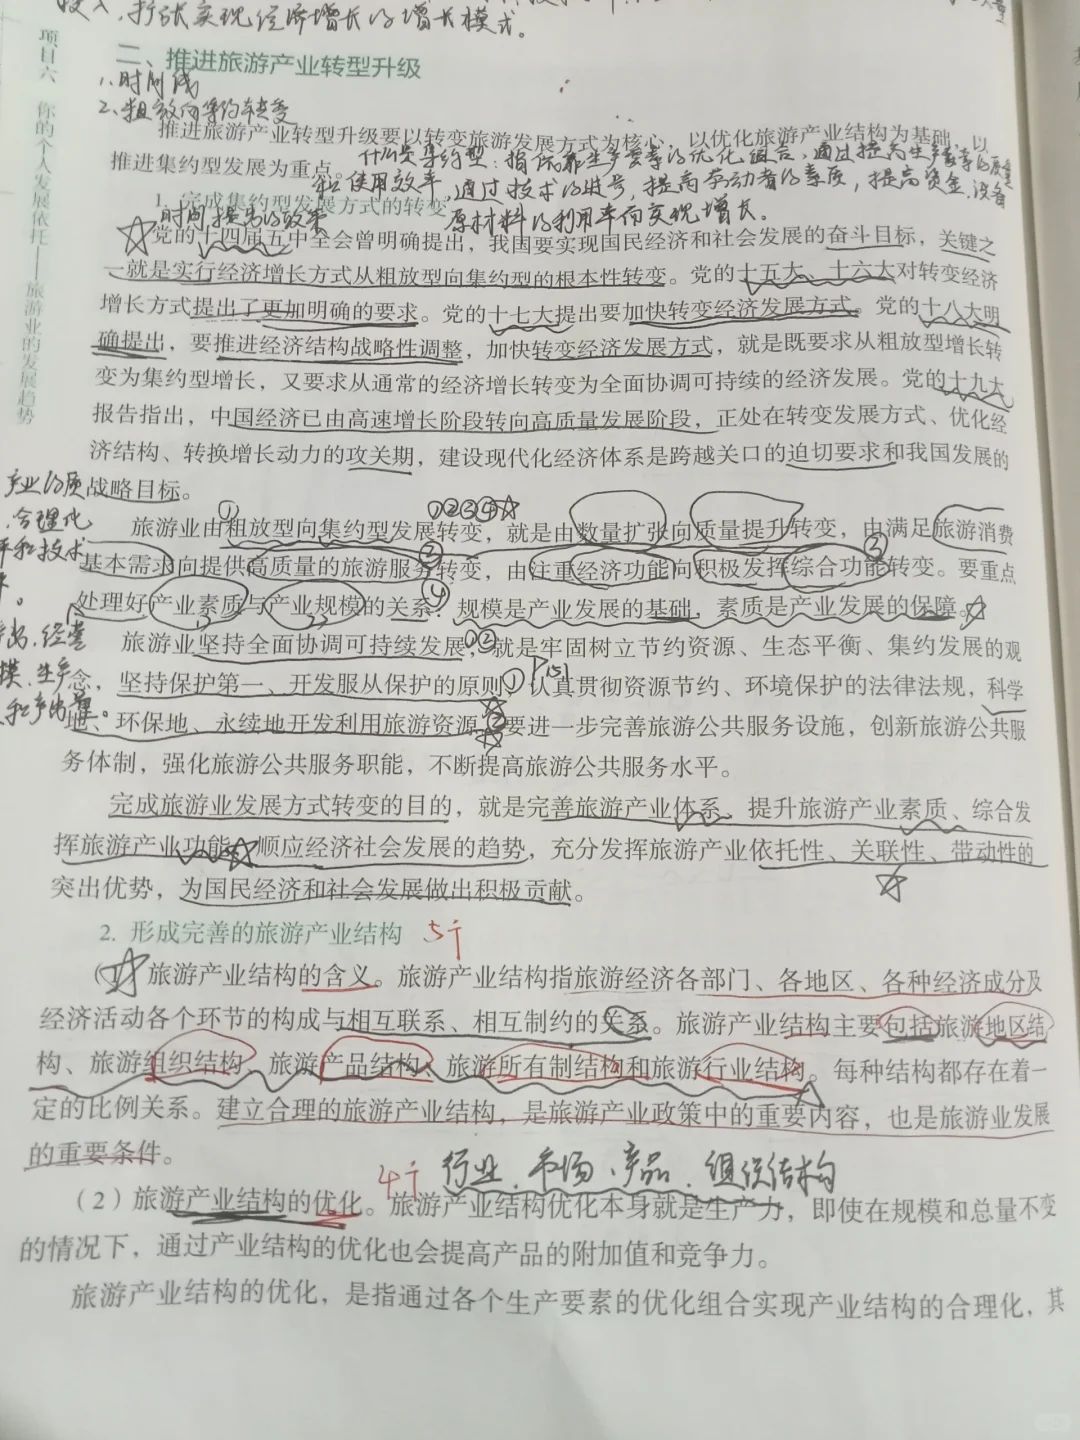 投入，扩张实现经济增长的增长模式。
项目六 你的个人发展依托——旅游业的发展趋势
二、推进旅游产业转型升级
1.时间线
2.粗放向集约转变
推进旅游产业转型升级要以转变旅游发展方式为核心，以优化旅游产业结构为基础，以
推进集约型发展为重点。
什么是集约型：指依靠生产要素的优化组合，通过提高生产要素的质量
和使用效率，通过技术的进步，提高劳动者的素质，提高资金、设备
原材料的利用率而实现增长。
1. 完成集约型发展方式的转变
党的十四届五中全会曾明确提出，我国要实现国民经济和社会发展的奋斗目标，关键之
一就是实行经济增长方式从粗放型向集约型的根本性转变。党的十五大、十六大对转变经济
增长方式提出了更加明确的要求。党的十七大提出要加快转变经济发展方式。党的十八大明
确提出，要推进经济结构战略性调整，加快转变经济发展方式，就是既要求从粗放型增长转
变为集约型增长，又要求从通常的经济增长转变为全面协调可持续的经济发展。党的十九大
报告指出，中国经济已由高速增长阶段转向高质量发展阶段，正处在转变发展方式、优化经
济结构、转换增长动力的攻关期，建设现代化经济体系是跨越关口的迫切要求和我国发展的
产业的质
战略目标。
合理化
①
①②③④
旅游业由粗放型向集约型发展转变，就是由数量扩张向质量提升转变，由满足旅游消费
和技术
②
③
基本需求向提供高质量的旅游服务转变，由注重经济功能向积极发挥综合功能转变。要重点
④
处理好产业素质与产业规模的关系：规模是产业发展的基础，素质是产业发展的保障。
经营
①②
旅游业坚持全面协调可持续发展，就是牢固树立节约资源、生态平衡、集约发展的观
模、生产
P151
念，坚持保护第一、开发服从保护的原则，认真贯彻资源节约、环境保护的法律法规，科学
和产出量。
地、环保地、永续地开发利用旅游资源。要进一步完善旅游公共服务设施，创新旅游公共服
务体制，强化旅游公共服务职能，不断提高旅游公共服务水平。
完成旅游业发展方式转变的目的，就是完善旅游产业体系、提升旅游产业素质、综合发
挥旅游产业功能，顺应经济社会发展的趋势，充分发挥旅游产业依托性、关联性、带动性的
突出优势，为国民经济和社会发展做出积极贡献。
2. 形成完善的旅游产业结构 5个
旅游产业结构的含义。旅游产业结构指旅游经济各部门、各地区、各种经济成分及
经济活动各个环节的构成与相互联系、相互制约的关系。旅游产业结构主要包括旅游地区结
构、旅游组织结构、旅游产品结构、旅游所有制结构和旅游行业结构。每种结构都存在着一
定的比例关系。建立合理的旅游产业结构，是旅游产业政策中的重要内容，也是旅游业发展
的重要条件。
4个 行业、市场、产品、组织结构
（2）旅游产业结构的优化。旅游产业结构优化本身就是生产力，即使在规模和总量不变
的情况下，通过产业结构的优化也会提高产品的附加值和竞争力。
旅游产业结构的优化，是指通过各个生产要素的优化组合实现产业结构的合理化，其